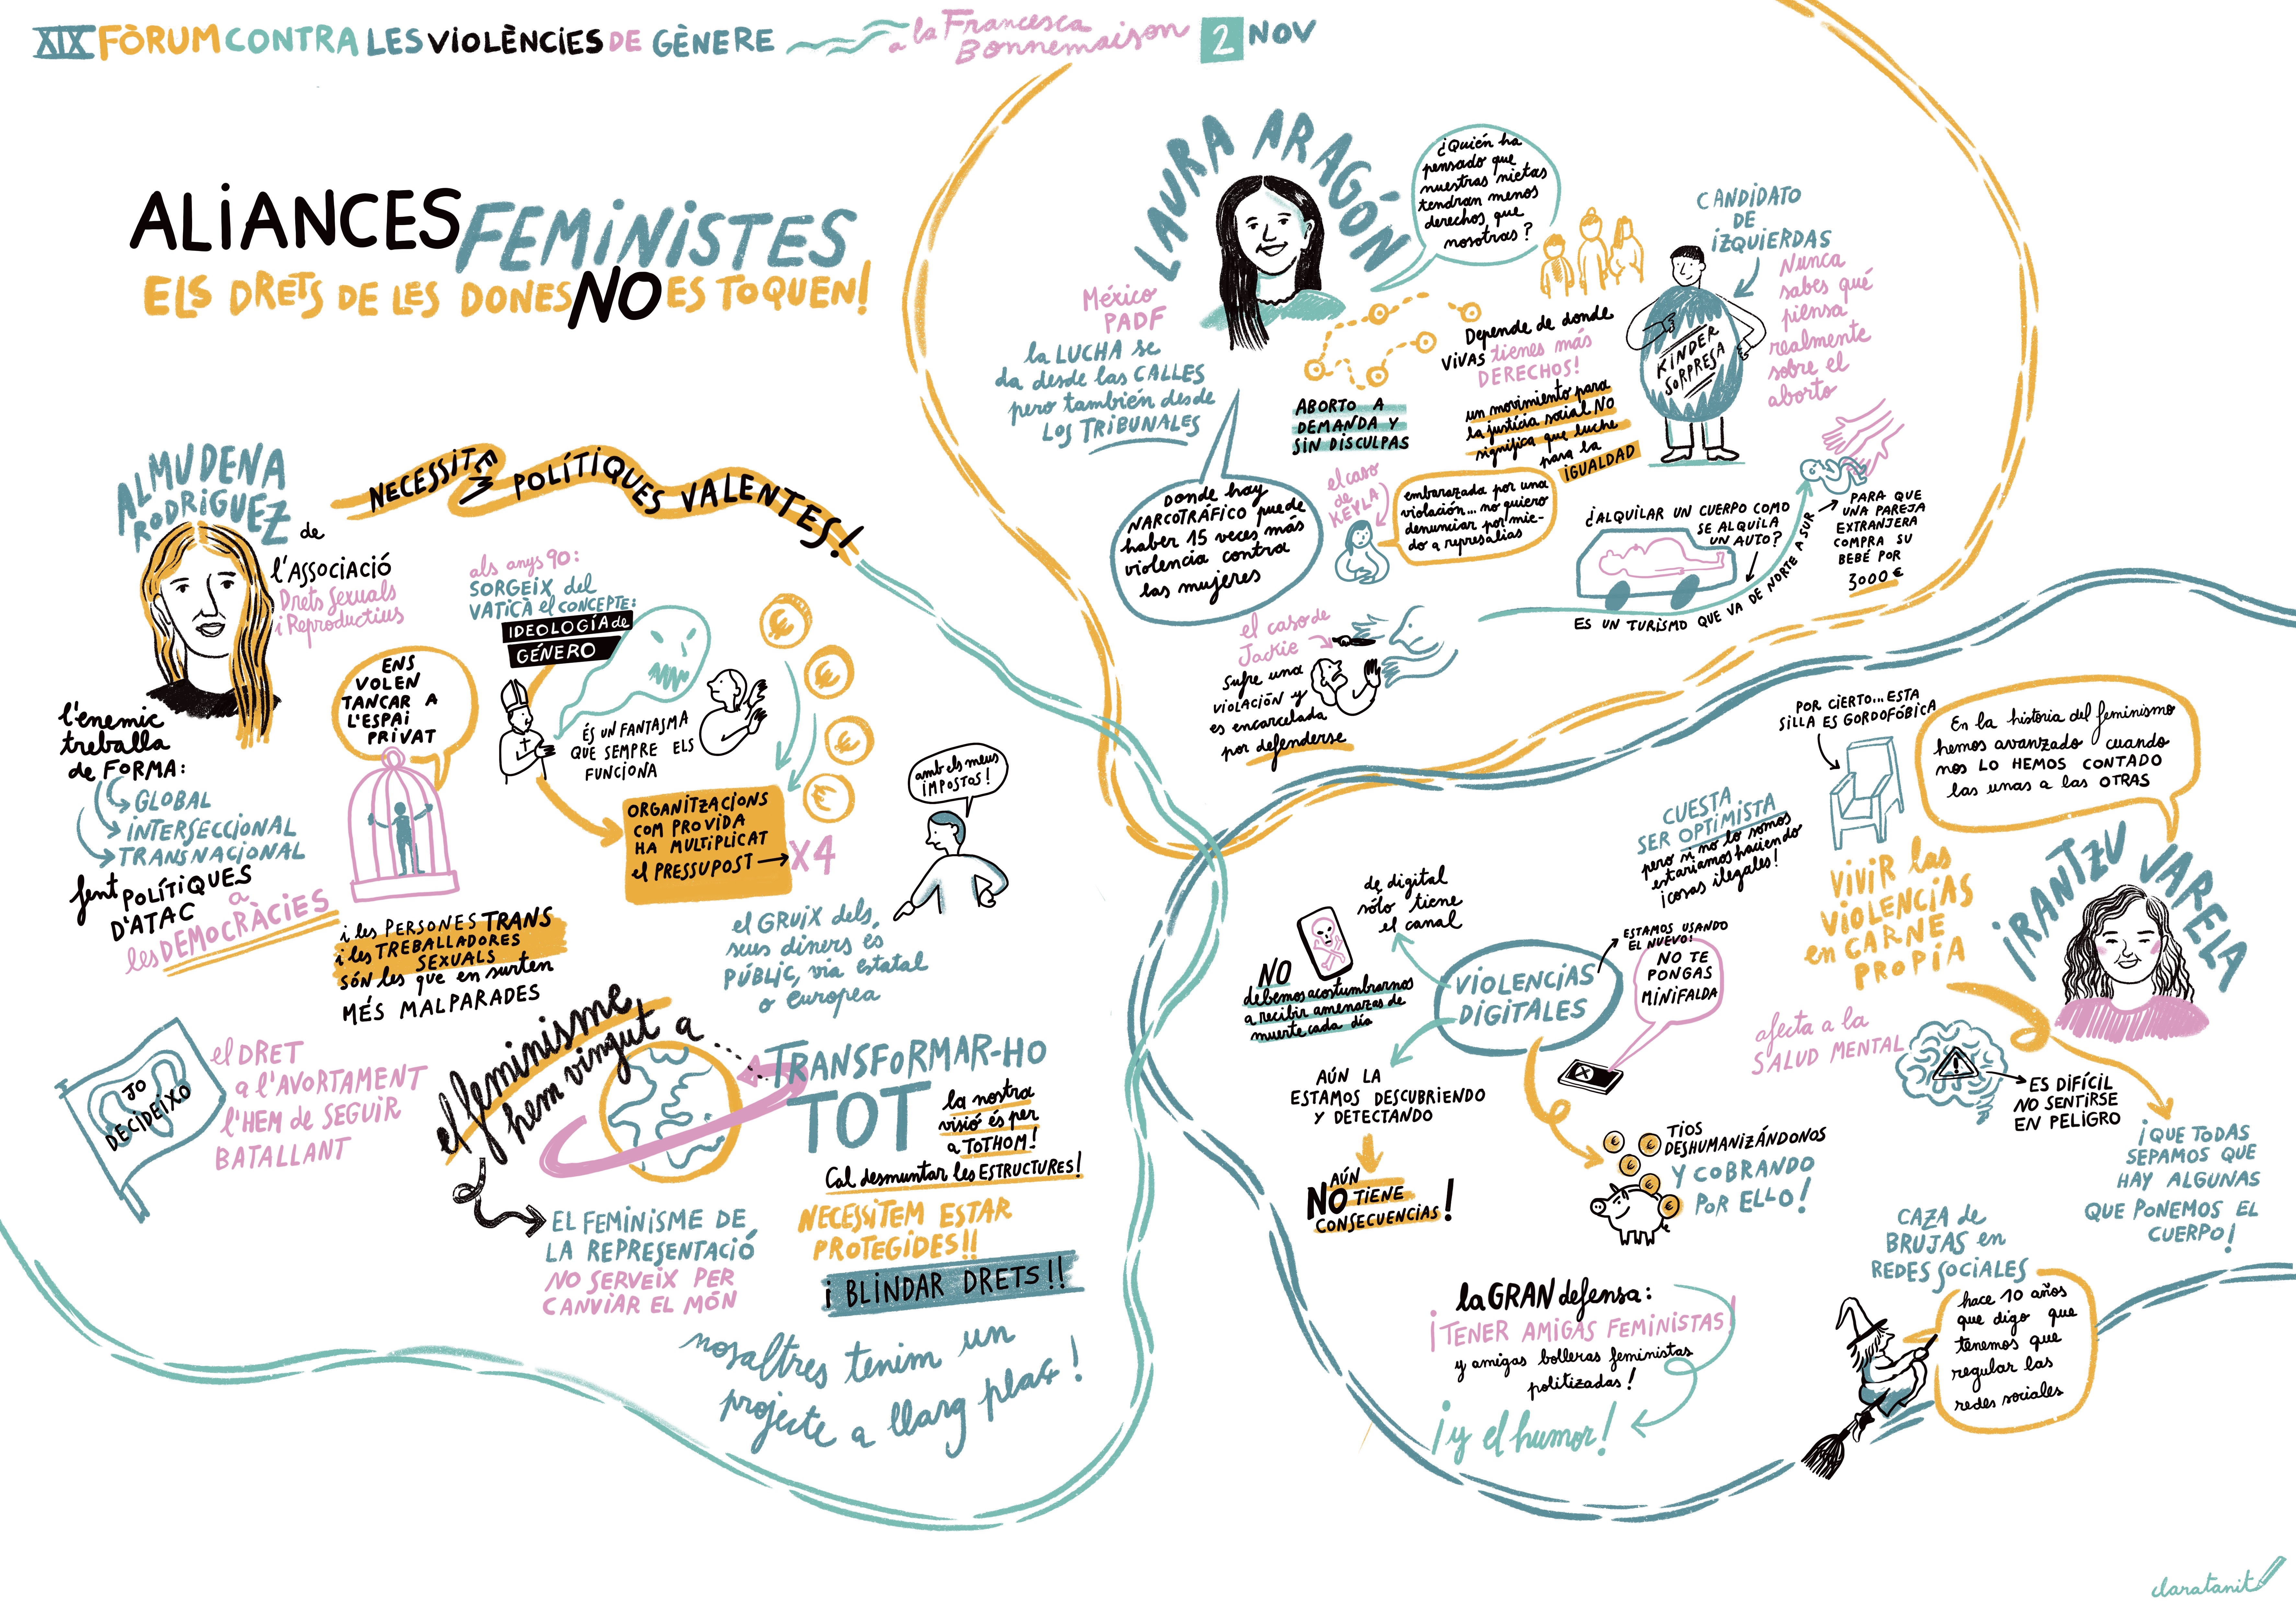 XIX FÒRUM CONTRA LES VIOLÈNCIES DE GÈNERE
a la Francesca
Bonnemaison
2 NOV
ALIANCES FEMINISTES
ELS DRETS DE LES DONES NO ES TOQUEN!
ALMUDENA
RODRIGUEZ
de
l'ASSOCIACIÓ
Drets Sexuals
i Reproductius
NECESSITEM POLÍTIQUES VALENTES!
l'enemic
treballa
de FORMA:
GLOBAL
INTERSECCIONAL
TRANSNACIONAL
fent POLÍTIQUES
D'ATAC a
les DEMOCRÀCIES
ENS
VOLEN
TANCAR A
L'ESPAI
PRIVAT
i les PERSONES TRANS
i les TREBALLADORES
SEXUALS
SÓN les que en surten
MÉS MALPARADES
als anys 90:
SORGEIX del
VATICÀ el CONCEPTE:
IDEOLOGÍA de
GÉNERO
ÉS UN FANTASMA
QUE SEMPRE ELS
FUNCIONA
ORGANITZACIONS
COM PROVIDA
HA MULTIPLICAT
el PRESSUPOST
X4
amb els meus
IMPOSTOS!
el GRUIX dels
seus diners és
PÚBLIC, via estatal
o europea
JO
DECIDEIXO
el DRET
a l'AVORTAMENT
l'HEM de SEGUIR
BATALLANT
el feminisme
hem vingut a...
TRANSFORMAR-HO
TOT
la nostra
visió és per
a TOTHOM!
Cal desmuntar les ESTRUCTURES!
EL FEMINISME DE
LA REPRESENTACIÓ
NO SERVEIX PER
CANVIAR EL MÓN
NECESSITEM ESTAR
PROTEGIDES!!
i BLINDAR DRETS!!
nosaltres tenim un
projecte a llarg plaç!
LAURA ARAGÓN
México
PADF
la LUCHA se
da desde las CALLES
pero también desde
LOS TRIBUNALES
¿Quién ha
pensado que
nuestras nietas
tendran menos
derechos que
nosotras?
Depende de donde
VIVAS tienes más
DERECHOS!
ABORTO A
DEMANDA Y
SIN DISCULPAS
un movimiento para
la justicia social NO
significa que luche
para la
IGUALDAD
CANDIDATO
DE
IZQUIERDAS
KINDER
SORPRESA
Nunca
sabes qué
piensa
realmente
sobre el
aborto
Donde hay
NARCOTRÁFICO puede
haber 15 veces más
violencia contra
las mujeres
el caso
de
KEYLA
embarazada por una
violación... no quiero
denunciar por mie-
do a represalias
el caso de
Jackie
Sufre una
VIOLACIÓN y
es encarcelada
por defenderse
¿ALQUILAR UN CUERPO COMO
SE ALQUILA
UN AUTO?
ES UN TURISMO QUE VA DE NORTE A SUR
PARA QUE
UNA PAREJA
EXTRANJERA
COMPRA SU
BEBÉ POR
3000 €
IRANTZU VARELA
POR CIERTO... ESTA
SILLA ES GORDOFÓBICA
En la historia del feminismo
hemos avanzado cuando
nos LO HEMOS CONTADO
las unas a las OTRAS
CUESTA
SER OPTIMISTA
pero si no lo somos
estaríamos haciendo
¡cosas ilegales!
VIVIR las
VIOLENCIAS
en CARNE
PROPIA
afecta a la
SALUD MENTAL
ES DIFÍCIL
NO SENTIRSE
EN PELIGRO
¡QUE TODAS
SEPAMOS QUE
HAY ALGUNAS
QUE PONEMOS EL
CUERPO!
VIOLENCIAS
DIGITALES
de digital
sólo tiene
el canal
NO
debemos acostumbrarnos
a recibir amenazas de
muerte cada día
ESTAMOS USANDO
EL NUEVO:
NO TE
PONGAS
MINIFALDA
AÚN LA
ESTAMOS DESCUBRIENDO
Y DETECTANDO
AÚN
NO TIENE
CONSECUENCIAS!
TIOS
DESHUMANIZÁNDONOS
Y COBRANDO
POR ELLO!
la GRAN defensa:
¡TENER AMIGAS FEMINISTAS!
y amigas bolleras feministas
politizadas!
¡y el humor!
CAZA de
BRUJAS en
REDES SOCIALES
hace 10 años
que digo que
tenemos que
regular las
redes sociales
claratanit